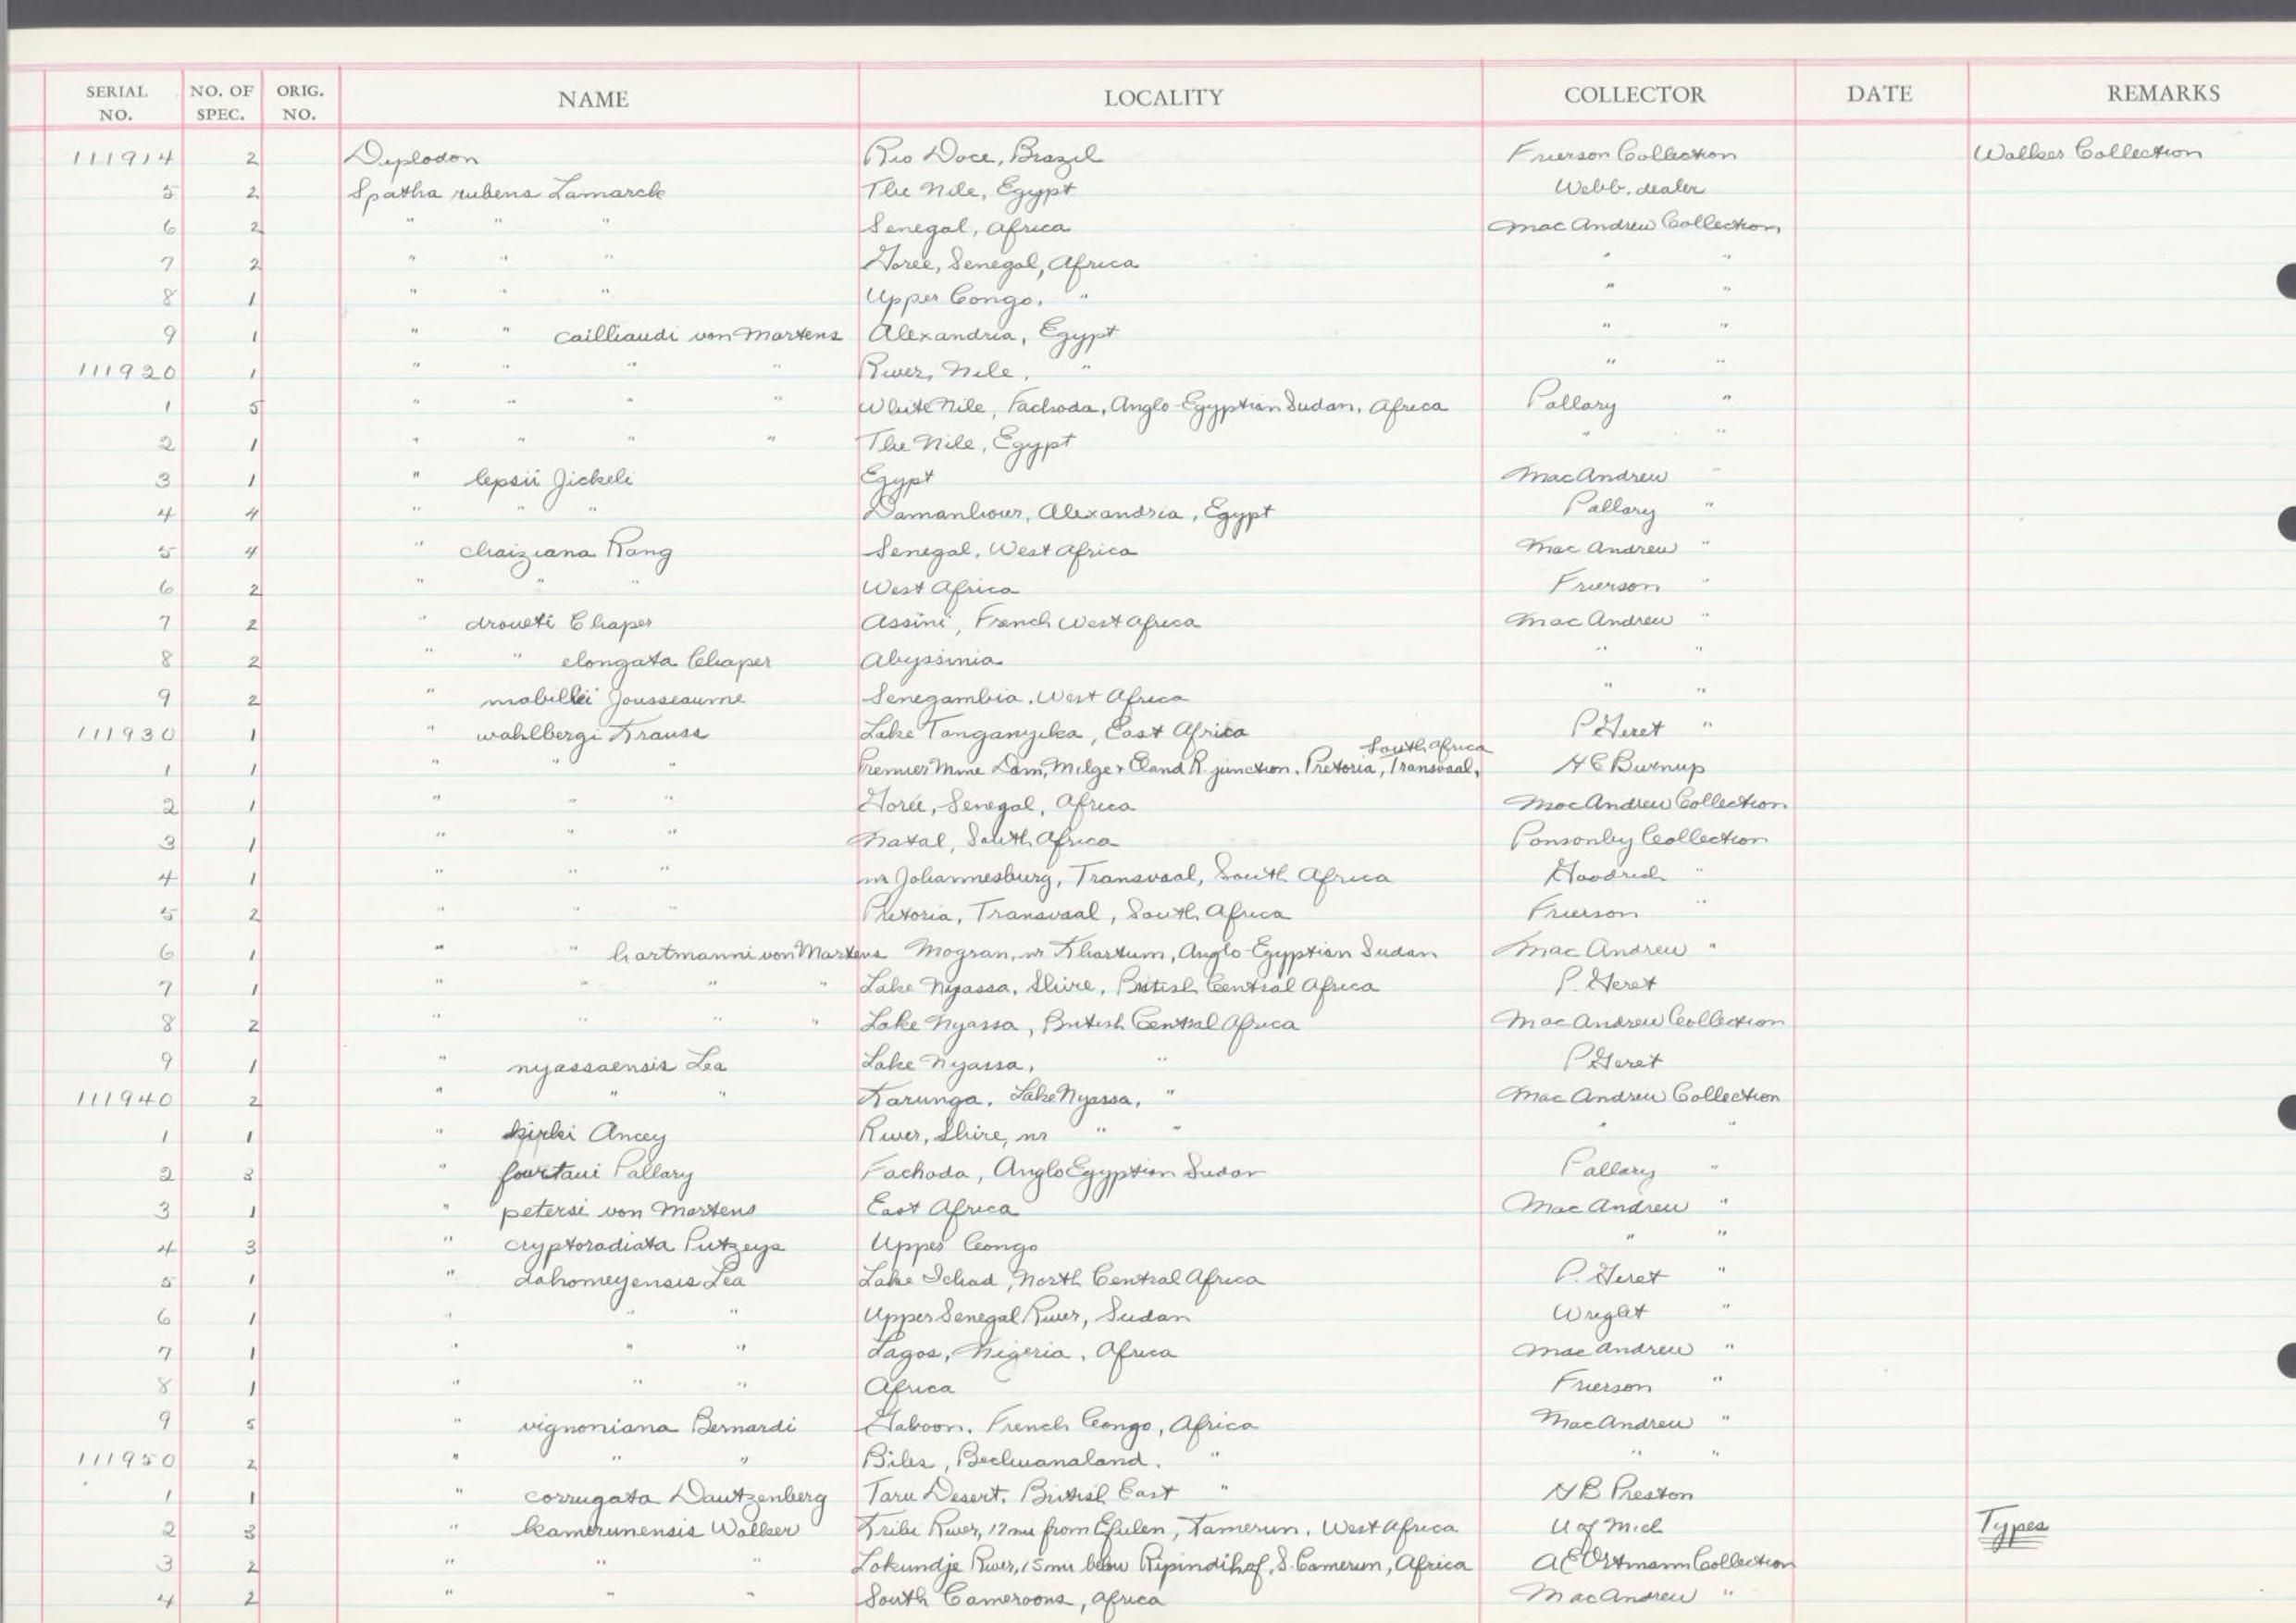 SERIAL NO. NO. OF SPEC. ORIG. NO. NAME LOCALITY COLLECTOR DATE REMARKS
111914 2 Diplodon Rio Doce, Brazil Frierson Collection Walker Collection
5 2 Spatha rubens Lamarck The Nile, Egypt Webb, dealer
6 2 " " " Senegal, Africa Mac Andrew Collection
7 2 " " " Gorée, Senegal, Africa " "
8 1 " " " Upper Congo, " " "
9 1 " " cailliaudi von Martens Alexandria, Egypt " "
111920 1 " " " " River, Nile, " " "
1 5 " " " " White Nile, Fachoda, Anglo-Egyptian Sudan, Africa Pallary "
2 1 " " " " The Nile, Egypt " "
3 1 " lepsii Jickeli Egypt MacAndrew "
4 4 " " " Damanhour, Alexandria, Egypt Pallary "
5 4 " chaiziana Rang Senegal, West Africa Mac Andrew "
6 2 " " " West Africa Frierson "
7 2 " droueti Chaper Assini, French West Africa Mac Andrew "
8 2 " " elongata Chaper Abyssinia " "
9 2 " mabillei Jousseaume Senegambia, West Africa " "
111930 1 " wahlbergi Krauss Lake Tanganyika, East Africa P Geret "
1 1 " " " Premier Mine Dam, Milge & Eland R. junction, Pretoria, Transvaal, South Africa H C Burnup
2 1 " " " Gorée, Senegal, Africa MacAndrew Collection
3 1 " " " Natal, South Africa Ponsonby Collection
4 1 " " " nr Johannesburg, Transvaal, South Africa Goodrich "
5 2 " " " Pretoria, Transvaal, South Africa Frierson "
6 1 " " hartmanni von Martens Mogran, nr Khartum, Anglo-Egyptian Sudan Mac Andrew "
7 1 " " " " Lake Nyassa, Shire, British Central Africa P. Geret
8 2 " " " " Lake Nyassa, British Central Africa Mac Andrew Collection
9 1 " nyassaensis Lea Lake Nyassa, " P Geret
111940 2 " " " Karunga, Lake Nyassa, " Mac Andrew Collection
1 1 " kirki Ancey River, Shire, nr " " " "
2 3 " fourtaui Pallary Fachoda, Anglo Egyptian Sudan Pallary "
3 1 " petersi von Martens East Africa Mac Andrew "
4 3 " cryptoradiata Putzeys Upper Congo " "
5 1 " dahomeyensis Lea Lake Tchad, North Central Africa P. Geret "
6 1 " " " Upper Senegal River, Sudan Wright "
7 1 " " " Lagos, Nigeria, Africa Mac Andrew "
8 1 " " " Africa Frierson "
9 5 " vignoniana Bernardi Gaboon, French Congo, Africa MacAndrew "
111950 2 " " " Biles, Bechuanaland, " " "
1 1 " corrugata Dautzenberg Taru Desert, British East " H B Preston
2 3 " kamerunensis Walker Kribi River, 17 mi from Efulen, Kamerun, West Africa U of Mich Types
3 2 " " " Lokundje River, 15 mi below Kipindihof, S. Camerun, Africa A E Ortmann Collection
4 2 " " " South Cameroons, Africa MacAndrew "